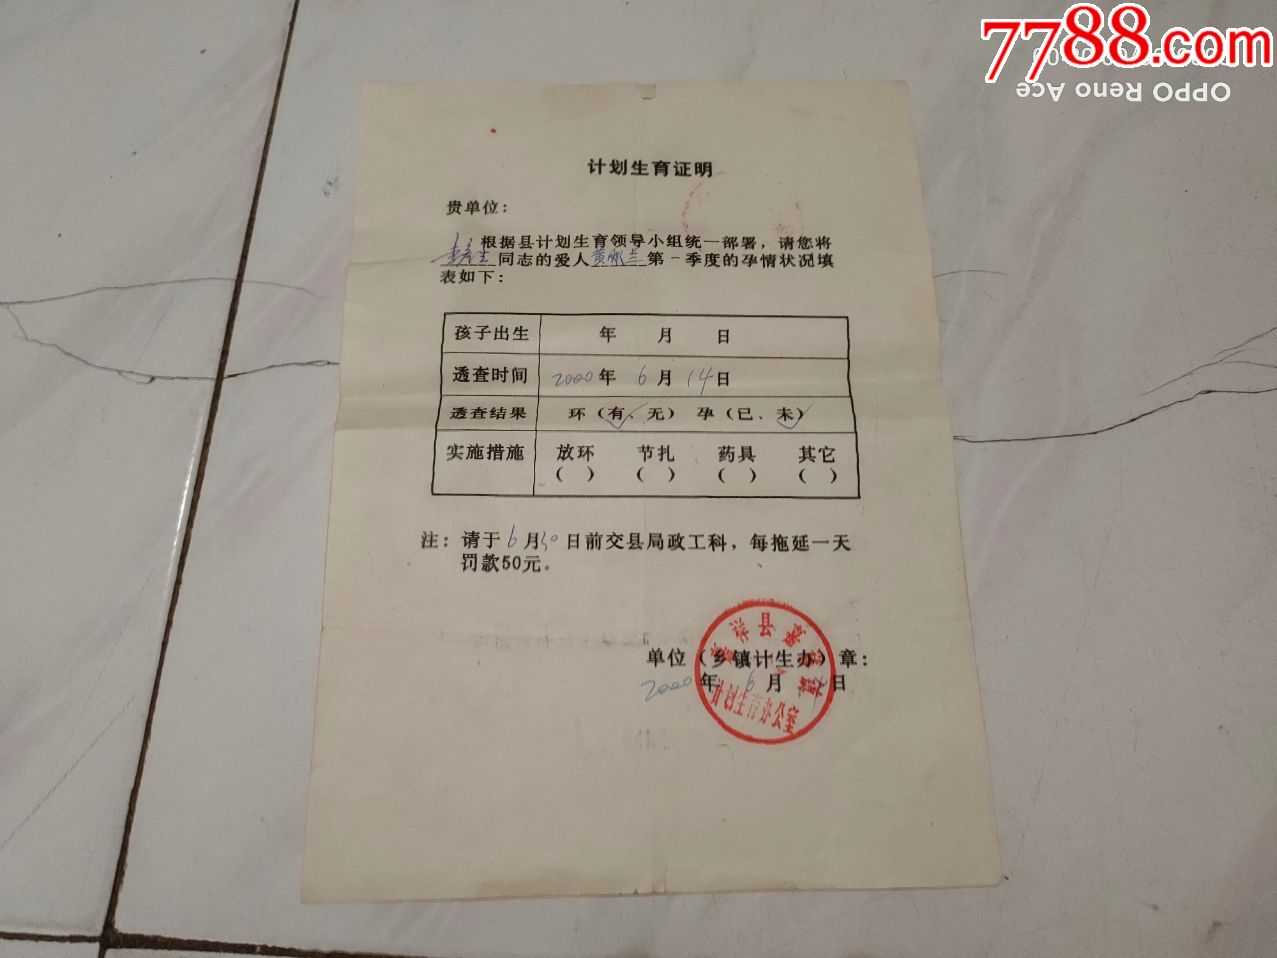 7788.com
OPPO Reno Ace
计划生育证明
贵单位：
根据县计划生育领导小组统一部署，请您将
同志的爱人黄 第一季度的孕情状况填
表如下：
孩子出生 年 月 日
透查时间 2000年 6月 14日
透查结果 环（有、无） 孕（已、未）
实施措施 放环 节扎 药具 其它
（ ） （ ） （ ） （ ）
注：请于6月30日前交县局政工科，每拖延一天
罚款50元。
单位（乡镇计生办）章：
2000年 6月 日
县 镇
计划生育办公室